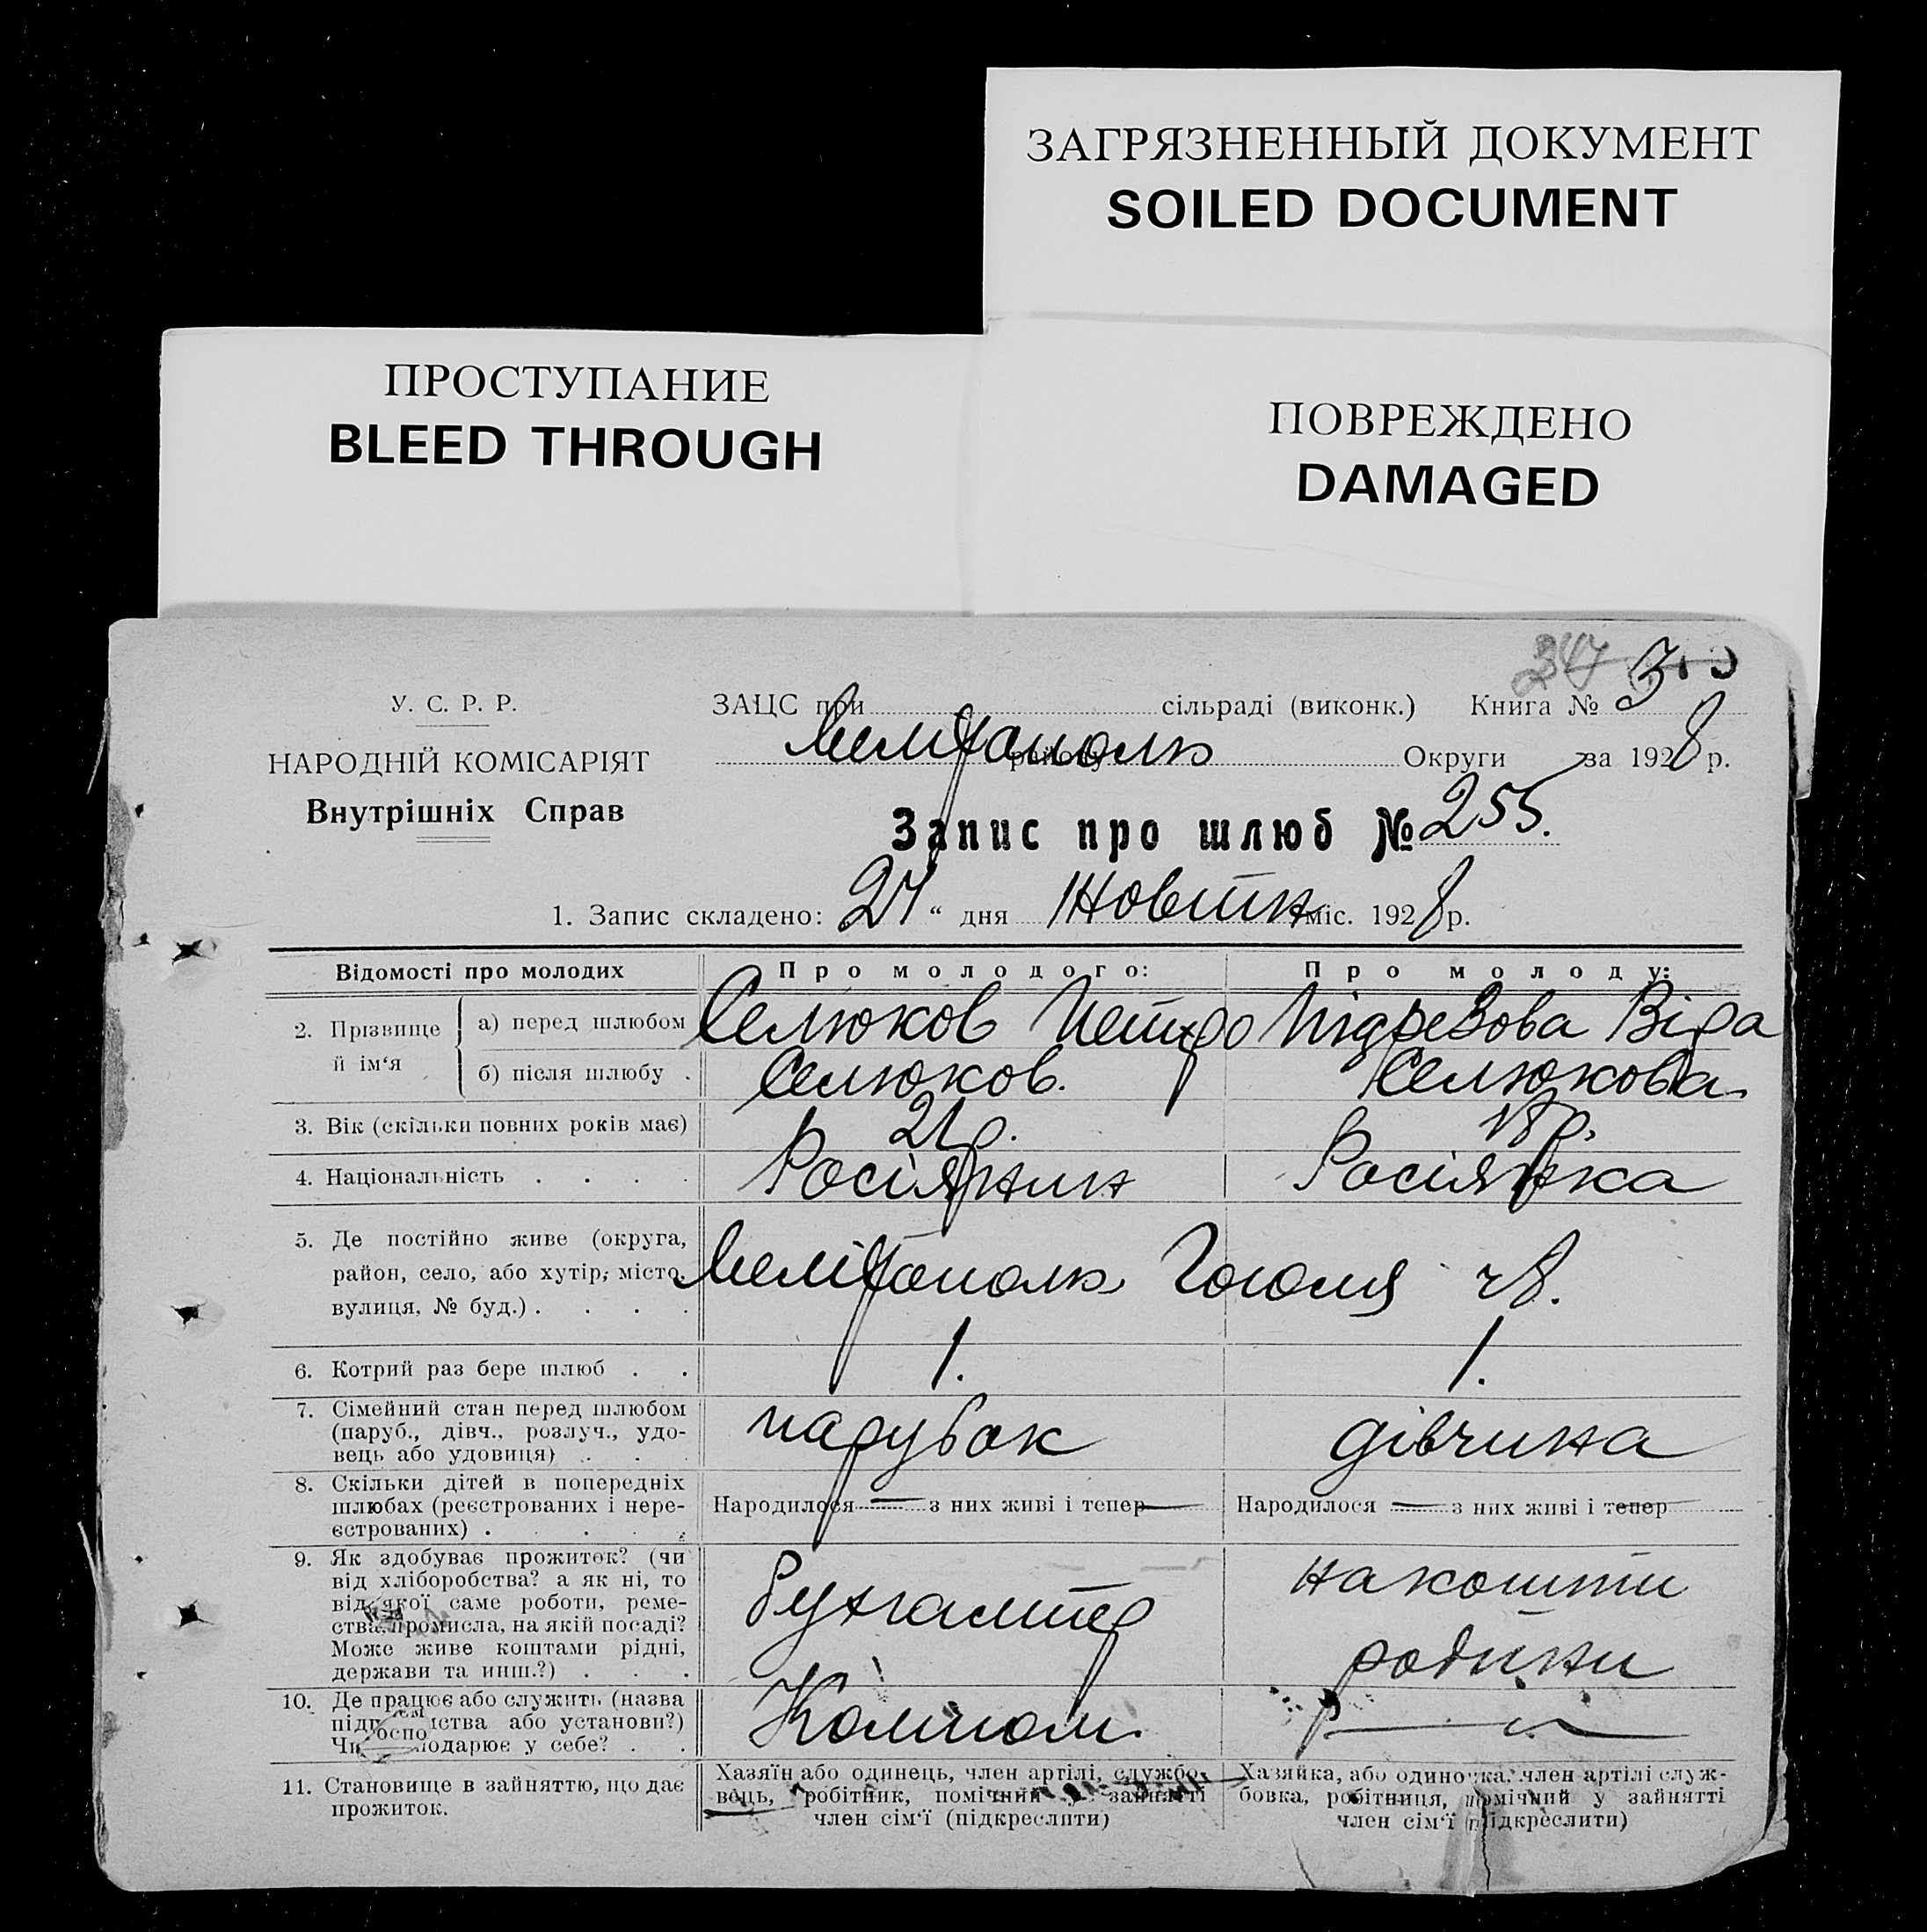 ЗАГРЯЗНЕННЫЙ ДОКУМЕНТ
SOILED DOCUMENT
ПРОСТУПАНИЕ
BLEED THROUGH
ПОВРЕЖДЕНО
DAMAGED
347
У. С. Р. Р.
НАРОДНІЙ КОМІСАРІЯТ
Внутрішніх Справ
ЗАЦС при сільраді (виконк.) Книга № 3
Мелітополь району Округи за 1928 р.
Запис про шлюб № 255.
1. Запис складено: 27 “ дня Жовтн міс. 1928 р.
Відомості про молодих Про молодого: Про молоду:
2. Прізвище й ім‘я
а) перед шлюбом Селюков Петро Підрезова Віра
б) після шлюбу . Селюков. Селюкова.
3. Вік (скільки повних років має) 21 р. 18 р.
4. Національність . . . . Росіянин Росіянка
5. Де постійно живе (округа,
район, село, або хутір, місто,
вулиця, № буд.) . . . .
Мелітополь Гоголя ч8.
6. Котрий раз бере шлюб . . 1. 1.
7. Сімейний стан перед шлюбом
(паруб., дівч., розлуч., удо-
вець або удовиця) . . .
парубок дівчина
8. Скільки дітей в попередніх
шлюбах (реєстрованих і нере-
єстрованих) . . . . .
Народилося — з них живі і тепер — Народилося — з них живі і тепер
9. Як здобуває прожиток? (чи
від хліборобства? а як ні, то
від якої саме роботи, реме-
ства, промисла, на якій посаді?
Може живе коштами рідні,
держави та инш.?) . . .
Бухгалтер на кошти
родини
10. Де працює або служить (назва
підп ства або установи?)
Чи подарює у себе? . .
11. Становище в зайняттю, що дає
прожиток.
Хазяїн або одинець, член артілі, службо-
вець, робітник, помічний у зайнятті
член сім‘ї (підкреслити)
Хазяйка, або одиночка, член артілі служ-
бовка, робітниця, помічний у зайнятті
член сім‘ї (підкреслити)